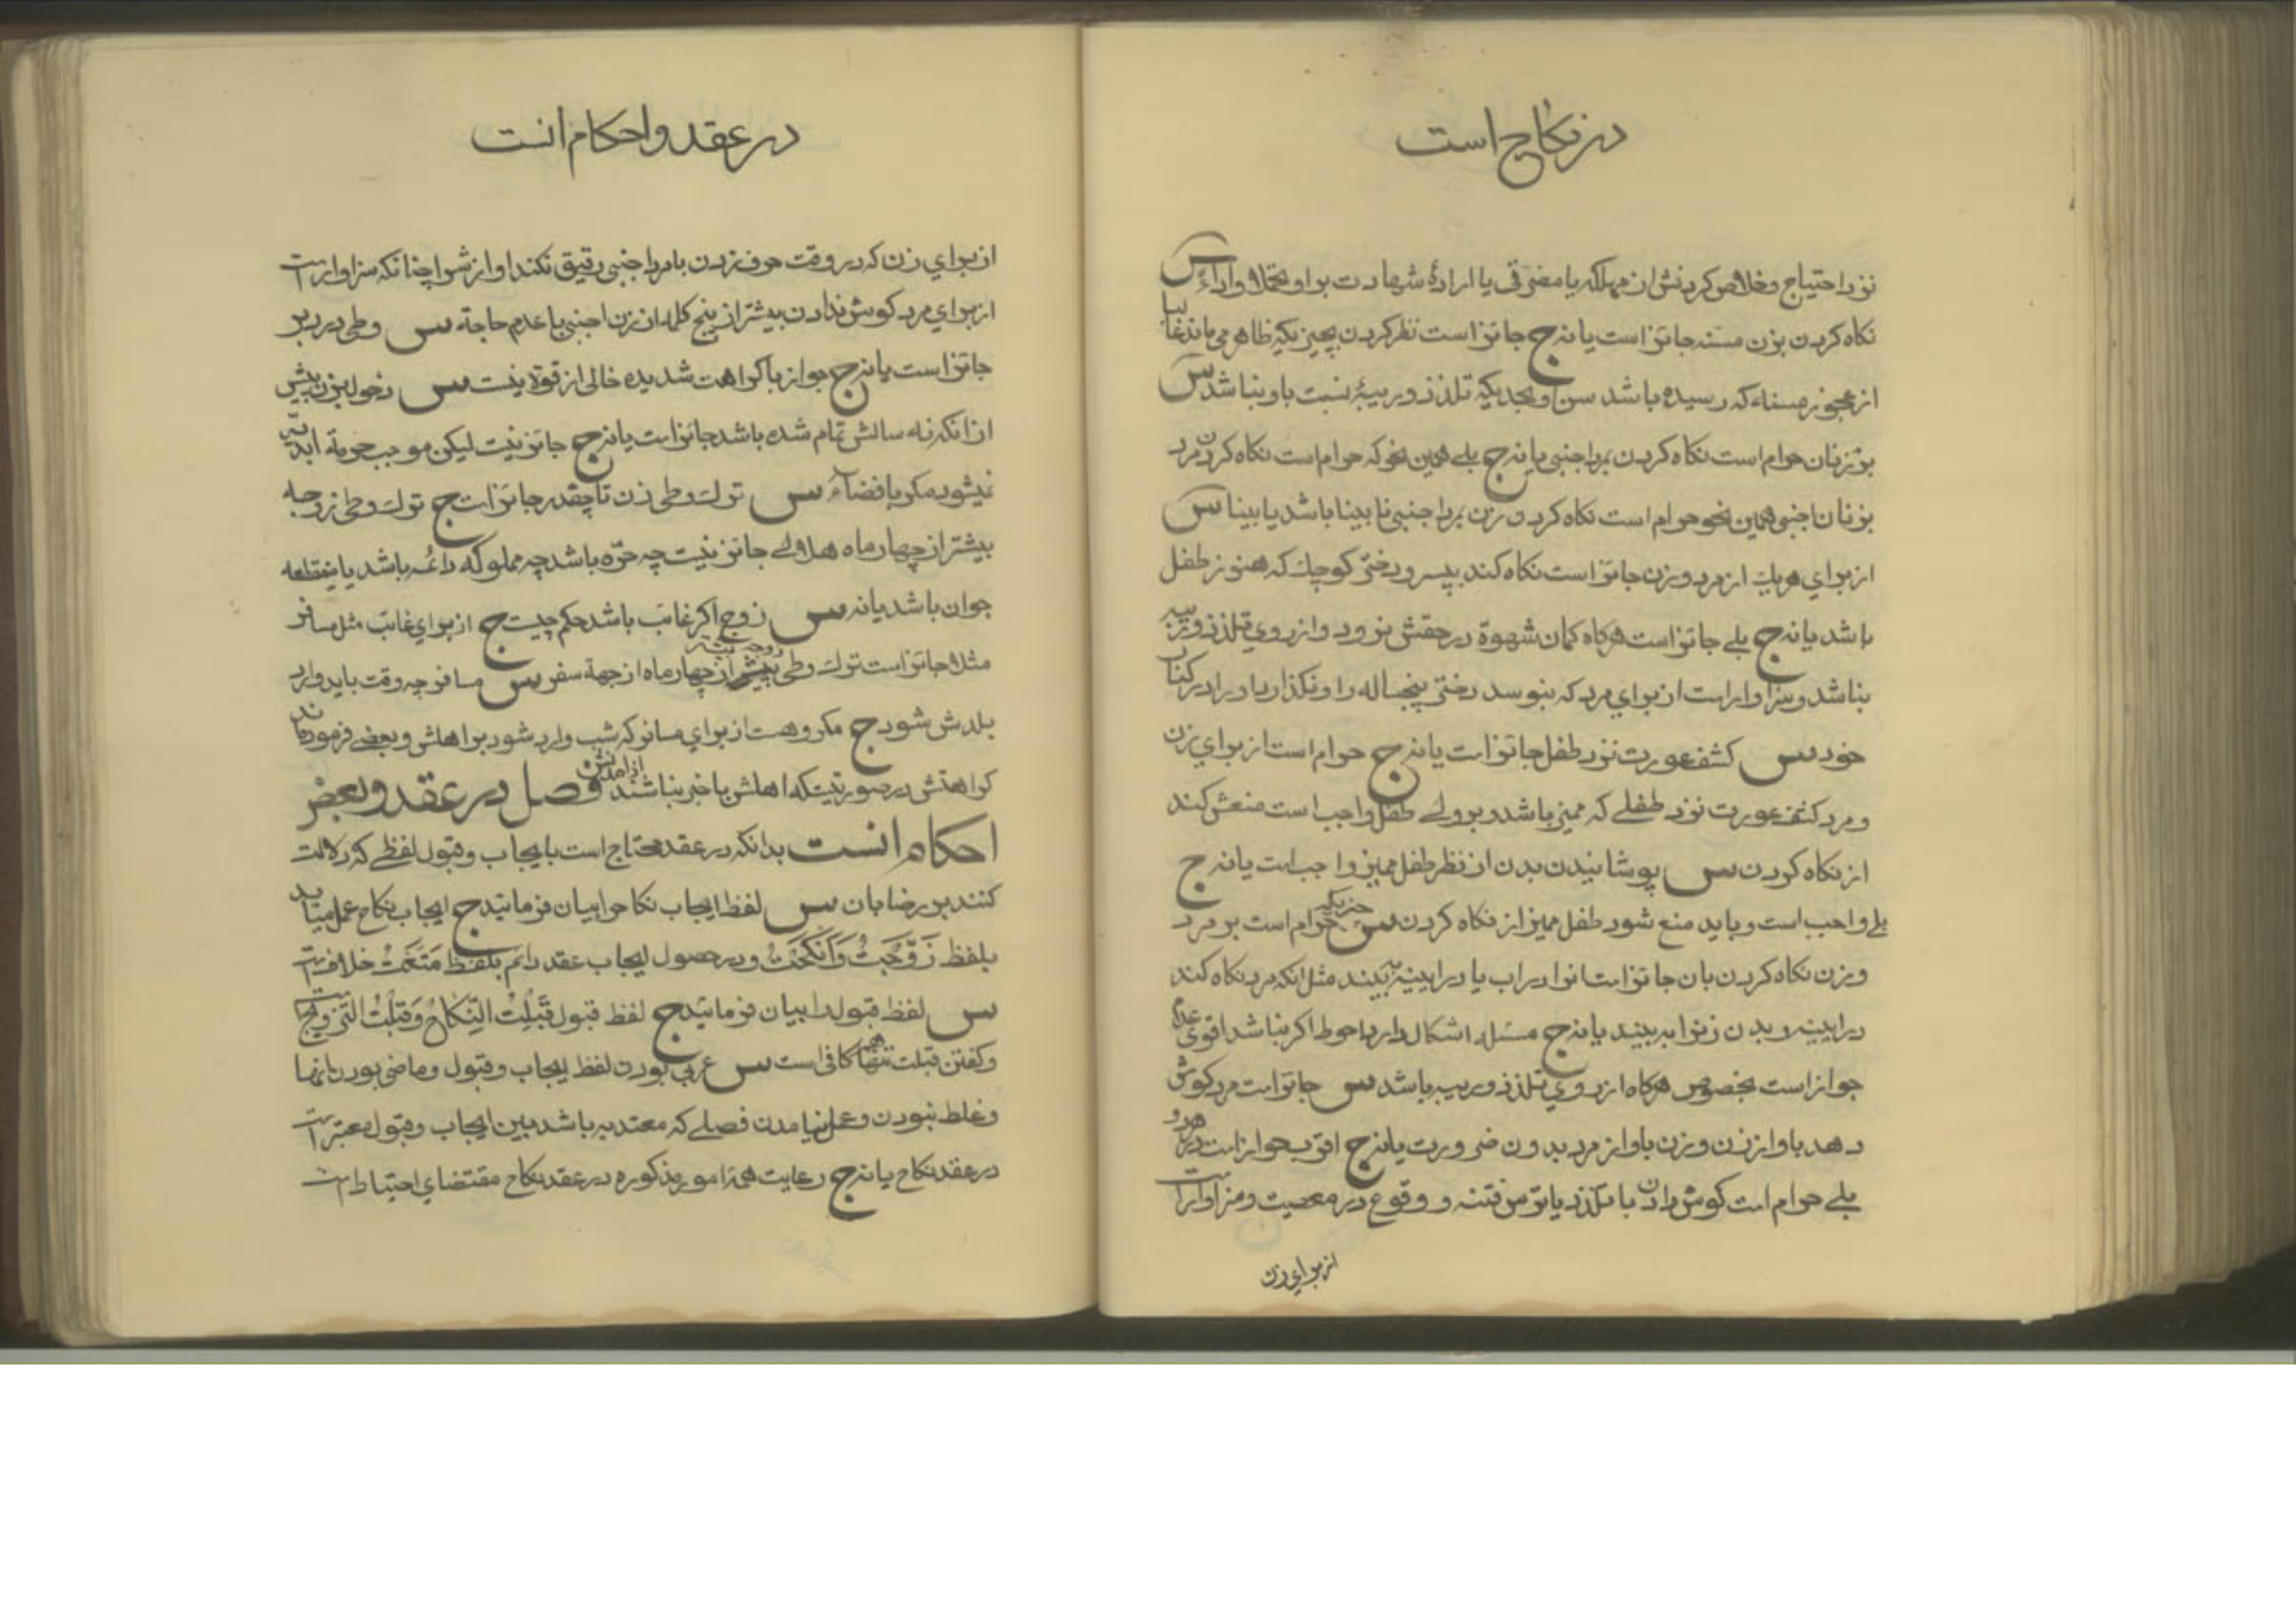 در نکاح است
نزد احتیاج و خلاص کردنش از مهلکه یا مضرّتی یا ارادهٔ شهادت بر او تحملا و اداء س
نکاه کردن بزن مسنه جائز است یا نه ج جائز است نظر کردن بچیزیکه ظاهر می‌ماند غالبا
از عجوز مسناء که رسیده باشد سن او بحدیکه تلذذ و ریبهٔ نسبت باو نباشد س
بر زنان حرام است نکاه کردن بمرد اجنبی یا نه ج بلے همین نحو که حرام است نکاه کردن مرد
بزنان اجنبی همین نحو حرام است نکاه کردن زن بمرد اجنبی نابینا باشد یا بینا س
از برای هر یک از مرد و زن جائز است نکاه کند بپسر و دختر کوچک که هنوز طفل
باشد یا نه ج بلے جائز است هرکاه کمان شهوة در حقش نرود و از روی تلذذ و ریبه
نباشد و سزاوار است از برای مرد که نبوسد دختر پنجساله را و نکذارد او را در کنار
خود س کشف عورت نزد طفل جائز است یا نه ج حرام است از برای زن
و مرد کشف عورت نزد طفلے که ممیز باشد و بر ولے طفل واجب است منعش کند
از نکاه کردن س پوشانیدن بدن از نظر طفل ممیز واجب است یا نه ج
بلے واجب است و باید منع شود طفل ممیز از نکاه کردن س چیزیکه حرام است بر مرد
و زن نکاه کردن بان جائز است انرا در اب یا در ایینه به بیند مثل انکه مرد نکاه کند
در ایینه و بدن زنرا به بیند یا نه ج مسئله اشکال دارد احوط اکر نباشد اقوی عدم
جواز است بخصوص هرکاه از روی تلذذ و ریبه باشد س جائز است مرد کوش
دهد باواز زن و زن باواز مرد بدون ضرورت یا نه ج اقرب جواز است در هر دو
بلے حرام است کوش دادن با تلذذ یا ترس فتنه و وقوع در معصیت و سزاوار است
از برای زن
در عقد و احکام انست
از برای زن که در وقت حرف زدن با مرد اجنبی رقیق نکند اواز شرا چنانکه سزاوار است
از برای مرد کوش ندادن بیشتر از پنج کلمه از زن اجنبی با عدم حاجة س وطی در دبر
جائز است یا نه ج جواز با کراهت شدیده خالی از قوة نیست س دخول بزن پیش
از انکه نه سالش تمام شده باشد جائز است یا نه ج جائز نیست لیکن موجب حرمة ابدیّه
نمیشود مکر بافضاء س ترک وطی زن تا چقدر جائز است ج ترک وطی زوجه
بیشتر از چهار ماه هلالے جائز نیست چه حرّه باشد چه مملوکه دائمه باشد یا منقطعه
جوان باشد یا نه س زوج اکر غائب باشد حکم چیست ج از برای غائب مثل مسافر
مثلا جائز است ترک وطی زوجه بیشتر از چهار ماه از جهة سفر س مسافر چه وقت باید وارد
بلدش شود ج مکروهست از برای مسافر که شب وارد شود بر اهلش و بعضے فرموده‌اند
کراهتش در صورتیست که اهلش با خبر نباشند از امدنش فصل در عقد و بعض
احکام انست بدانکه در عقد محتاج است بایجاب و قبول لفظے که دلالت
کنند بر رضا بان س لفظ ایجاب نکاح را بیان فرمائید ج ایجاب نکاح بعمل میاید
بلفظ زَوَّجْتُ وَاَنْکَحْتُ و در حصول ایجاب عقد دائم بلفظ مَتَّعْتُ خلافست
س لفظ قبول را بیان فرمائید ج لفظ قبول قَبِلْتُ النِّکَاحَ وَقَبِلْتُ التَّزْوِیجَ است
و کفتن قبلت تنها هم کافی است س عربی بودن لفظ ایجاب و قبول و ماضی بودن انها
و غلط نبودن و بعمل نیامدن فصلے که معتد به باشد بین ایجاب و قبول معتبر است
در عقد نکاح یا نه ج رعایت همه امور مذکوره در عقد نکاح مقتضای احتیاط است